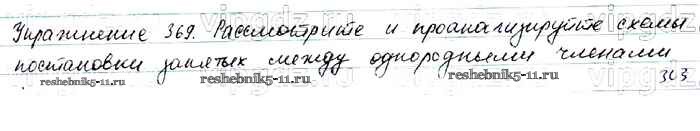 Упражнение 369. Рассмотрите и проанализируйте схемы
постановки запятых между однородными членами
reshebnik5-11.ru reshebnik5-11.ru reshebnik5-11.ru
303